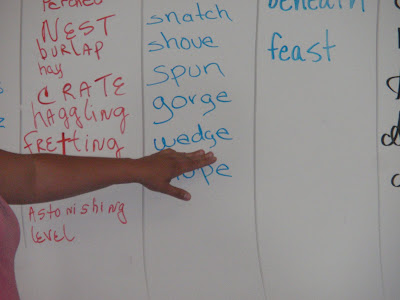 NEST
burlap
hay
CRATE
haggling
fretting
Astonishing
level
snatch
shove
spun
gorge
wedge
beneath
feast